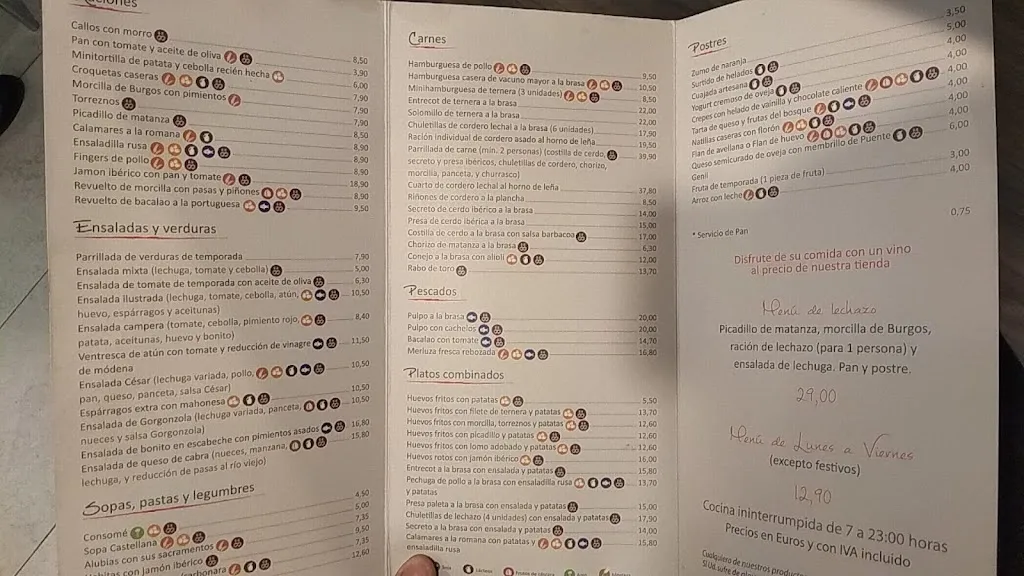 Callos con morro 8,50
Pan con tomate y aceite de oliva 3,90
Minitortilla de patata y cebolla recién hecha 6,00
Croquetas caseras 7,90
Morcilla de Burgos con pimientos 7,90
Torreznos 7,90
Picadillo de matanza 8,50
Calamares a la romana 8,90
Ensaladilla rusa 8,90
Fingers de pollo 8,90
Jamon ibérico con pan y tomate 18,90
Revuelto de morcilla con pasas y piñones 8,90
Revuelto de bacalao a la portuguesa 9,50
Ensaladas y verduras
Parrillada de verduras de temporada 7,90
Ensalada mixta (lechuga, tomate y cebolla) 5,00
Ensalada de tomate de temporada con aceite de oliva 6,30
Ensalada ilustrada (lechuga, tomate, cebolla, atún, 10,50
huevo, espárragos y aceitunas)
Ensalada campera (tomate, cebolla, pimiento rojo, 8,40
patata, aceitunas, huevo y bonito)
Ventresca de atún con tomate y reducción de vinagre 11,50
de módena
Ensalada César (lechuga variada, pollo, 10,50
pan, queso, panceta, salsa César)
Espárragos extra con mahonesa 10,50
Ensalada de Gorgonzola (lechuga variada, panceta, 10,50
nueces y salsa Gorgonzola)
Ensalada de bonito en escabeche con pimientos asados 16,80
Ensalada de queso de cabra (nueces, manzana, 15,80
lechuga, y reducción de pasas al río viejo)
Sopas, pastas y legumbres
Consomé 4,50
Sopa Castellana 5,00
Alubias con sus sacramentos 7,35
con jamón ibérico
12,60
Carnes
Hamburguesa de pollo 9,50
Hamburguesa casera de vacuno mayor a la brasa 10,50
Minihamburguesa de ternera (3 unidades) 8,50
Entrecot de ternera a la brasa 22,00
Solomillo de ternera a la brasa 22,00
Chuletillas de cordero lechal a la brasa (6 unidades) 17,90
Ración individual de cordero asado al horno de leña 19,50
Parrillada de carne (min. 2 personas) (costilla de cerdo, 39,90
secreto y presa ibéricos, chuletillas de cordero, chorizo,
morcilla, panceta, y churrasco)
Cuarto de cordero lechal al horno de leña 37,80
Riñones de cordero a la plancha 8,50
Secreto de cerdo ibérico a la brasa 14,00
Presa de cerdo ibérica a la brasa 15,00
Costilla de cerdo a la brasa con salsa barbacoa 17,00
Chorizo de matanza a la brasa 6,30
Conejo a la brasa con alioli 12,00
Rabo de toro 13,70
Pescados
Pulpo a la brasa 20,00
Pulpo con cachelos 20,00
Bacalao con tomate 14,70
Merluza fresca rebozada 16,80
Platos combinados
Huevos fritos con patatas 5,50
Huevos fritos con filete de ternera y patatas 13,70
Huevos fritos con morcilla, torreznos y patatas 12,60
Huevos fritos con picadillo y patatas 12,60
Huevos fritos con lomo adobado y patatas 12,60
Huevos rotos con jamón ibérico 16,00
Entrecot a la brasa con ensalada y patatas 15,80
Pechuga de pollo a la brasa con ensaladilla rusa 13,70
y patatas
Presa paleta a la brasa con ensalada y patatas 15,00
Chuletillas de lechazo (4 unidades) con ensalada y patatas 17,90
Secreto a la brasa con ensalada y patatas 14,00
Calamares a la romana con patatas y 15,80
ensaladilla rusa
Postres
Zumo de naranja 3,50
Surtido de helados 5,00
Cuajada artesana 4,00
Yogurt cremoso de oveja 4,00
Crepes con helado de vainilla y chocolate caliente 4,00
Tarta de queso y frutas del bosque 4,00
Natillas caseras con florón 4,00
Flan de avellana o Flan de huevo 4,00
Queso semicurado de oveja con membrillo de Puente 6,00
Genil
Fruta de temporada (1 pieza de fruta) 3,00
Arroz con leche 4,00
* Servicio de Pan 0,75
Disfrute de su comida con un vino
al precio de nuestra tienda
Menú de lechazo
Picadillo de matanza, morcilla de Burgos,
ración de lechazo (para 1 persona) y
ensalada de lechuga. Pan y postre.
29,00
Menú de Lunes a Viernes
(excepto festivos)
12,90
Cocina ininterrumpida de 7 a 23:00 horas
Precios en Euros y con IVA incluido